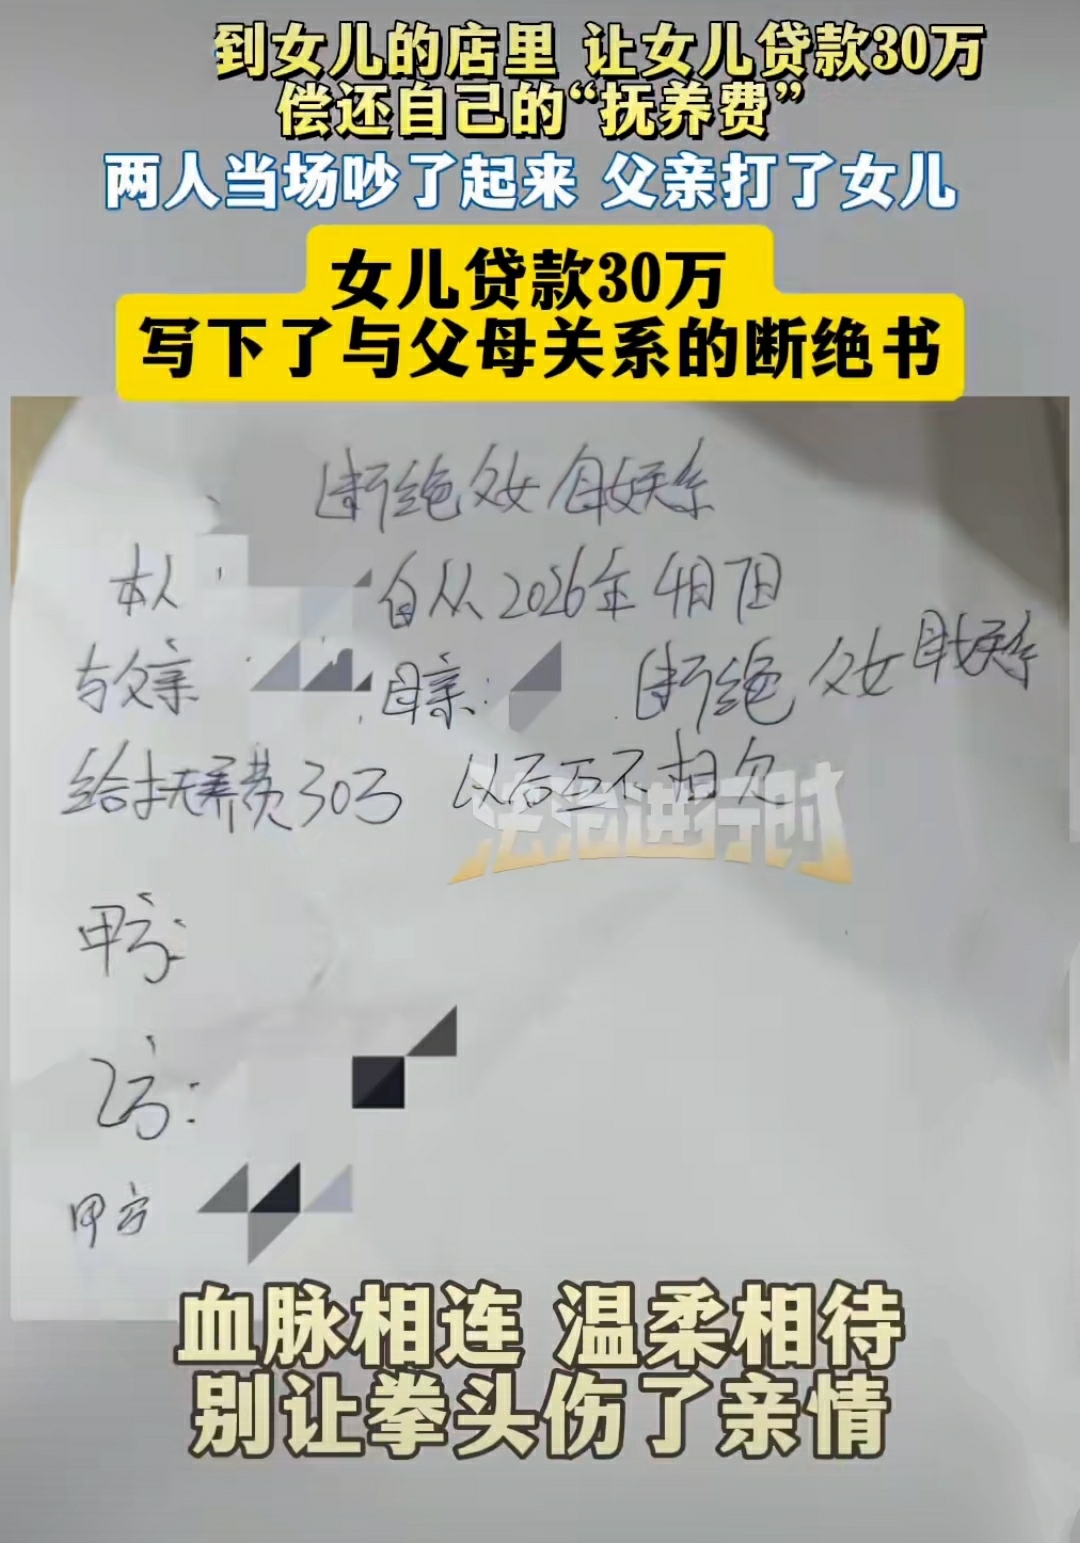 到女儿的店里 让女儿贷款30万
偿还自己的“抚养费”
两人当场吵了起来 父亲打了女儿
女儿贷款30万
写下了与父母关系的断绝书
断绝父女母女关系
本人 自从2026年4月7日
与父亲 母亲: 断绝父女母女关系
给抚养费30万 以后互不相欠
法治进行时
甲方:
乙方:
甲方
血脉相连 温柔相待
别让拳头伤了亲情